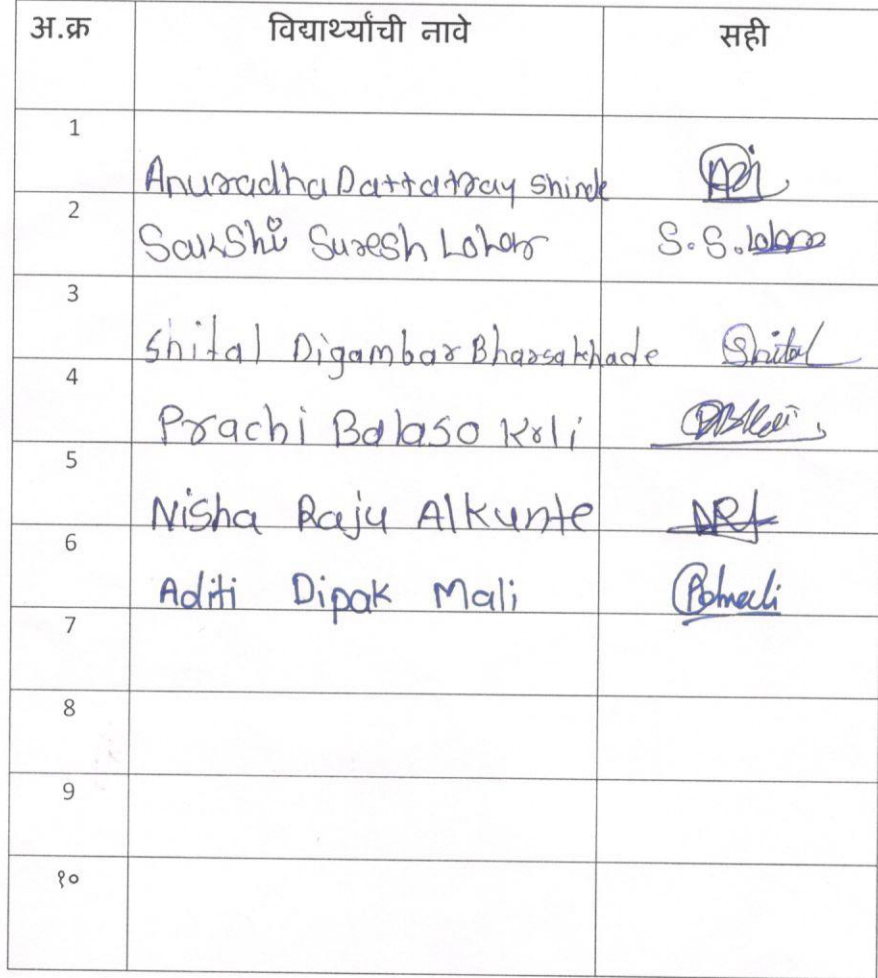 अ.क्र विद्यार्थ्यांची नावे सही
1
Anuradha Dattatray Shinde
2
Sakshi Suresh Lohar S.S. Lohar
3
Shital Digambar Bharsakhade Shital
4
Prachi Balaso Koli
5
Nisha Raju Alkunte
6
Aditi Dipak Mali
7
8
9
१०